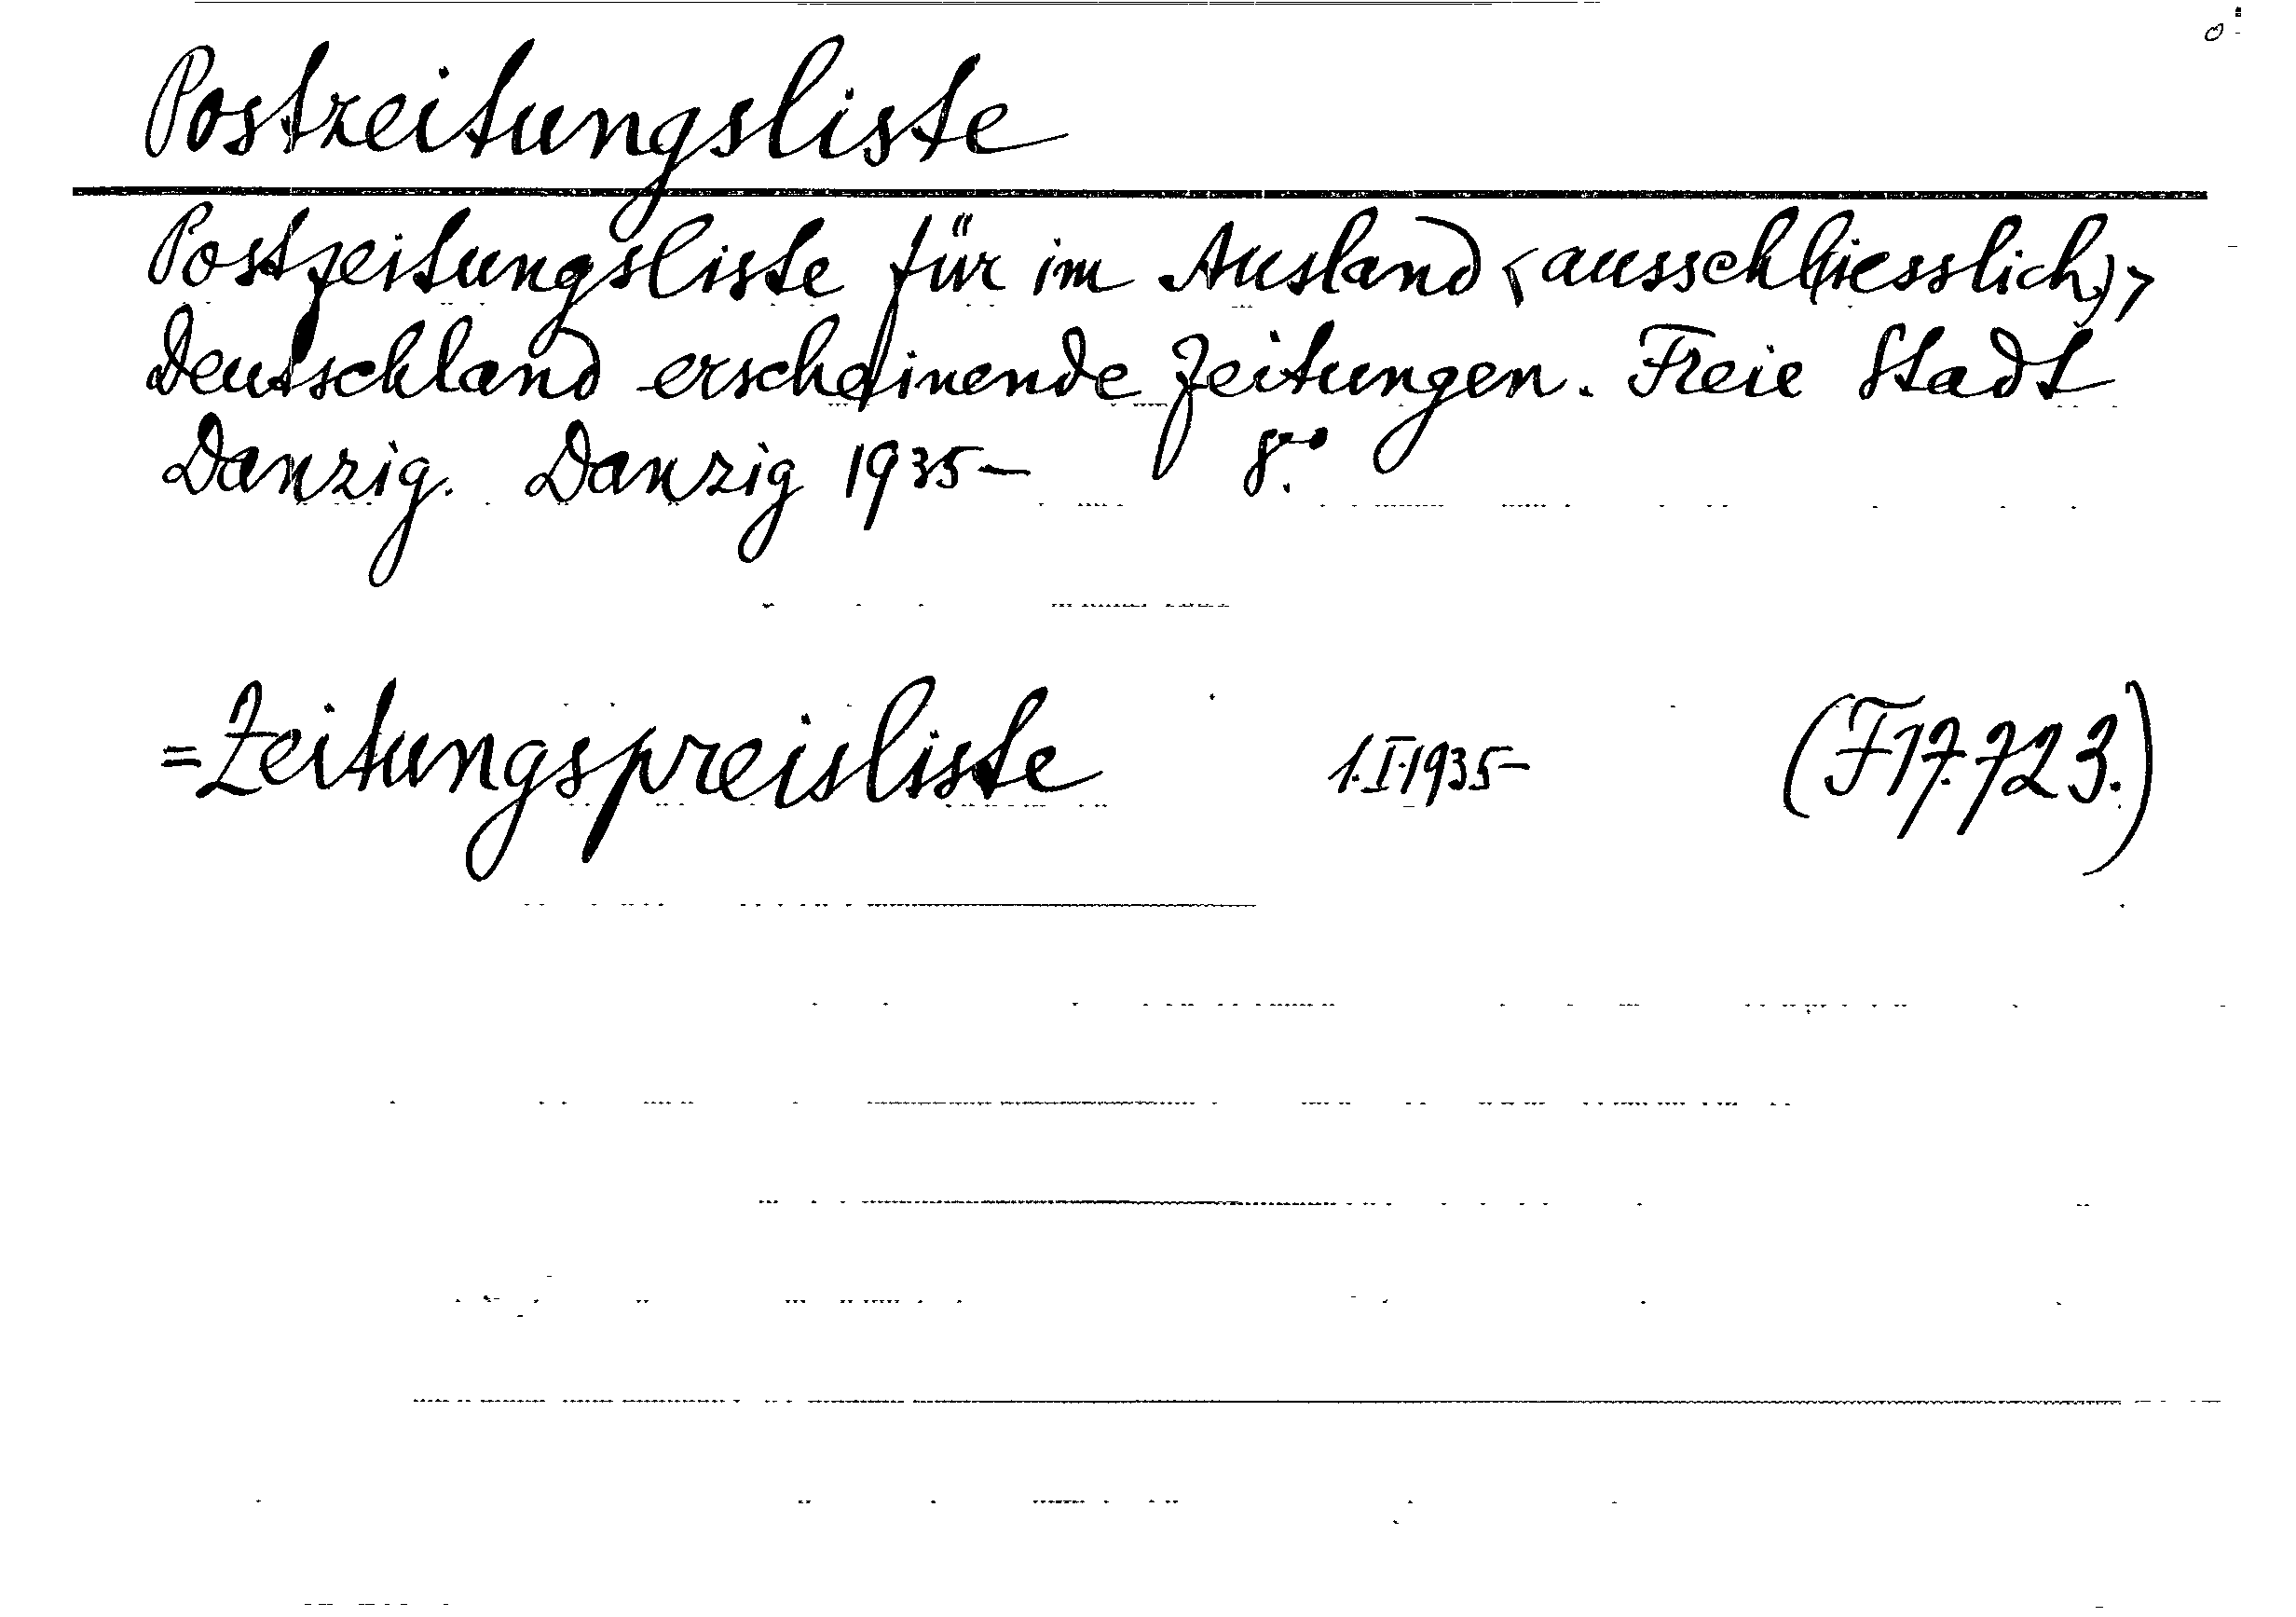 Postzeitungsliste
Postzeitungsliste für im Ausland <ausschliesslich>
Deutschland erscheinende Zeitungen. Freie Stadt
Danzig. Danzig 1935- 8°.
=Zeitungspreisliste 1.I.1935- (F17.723.)